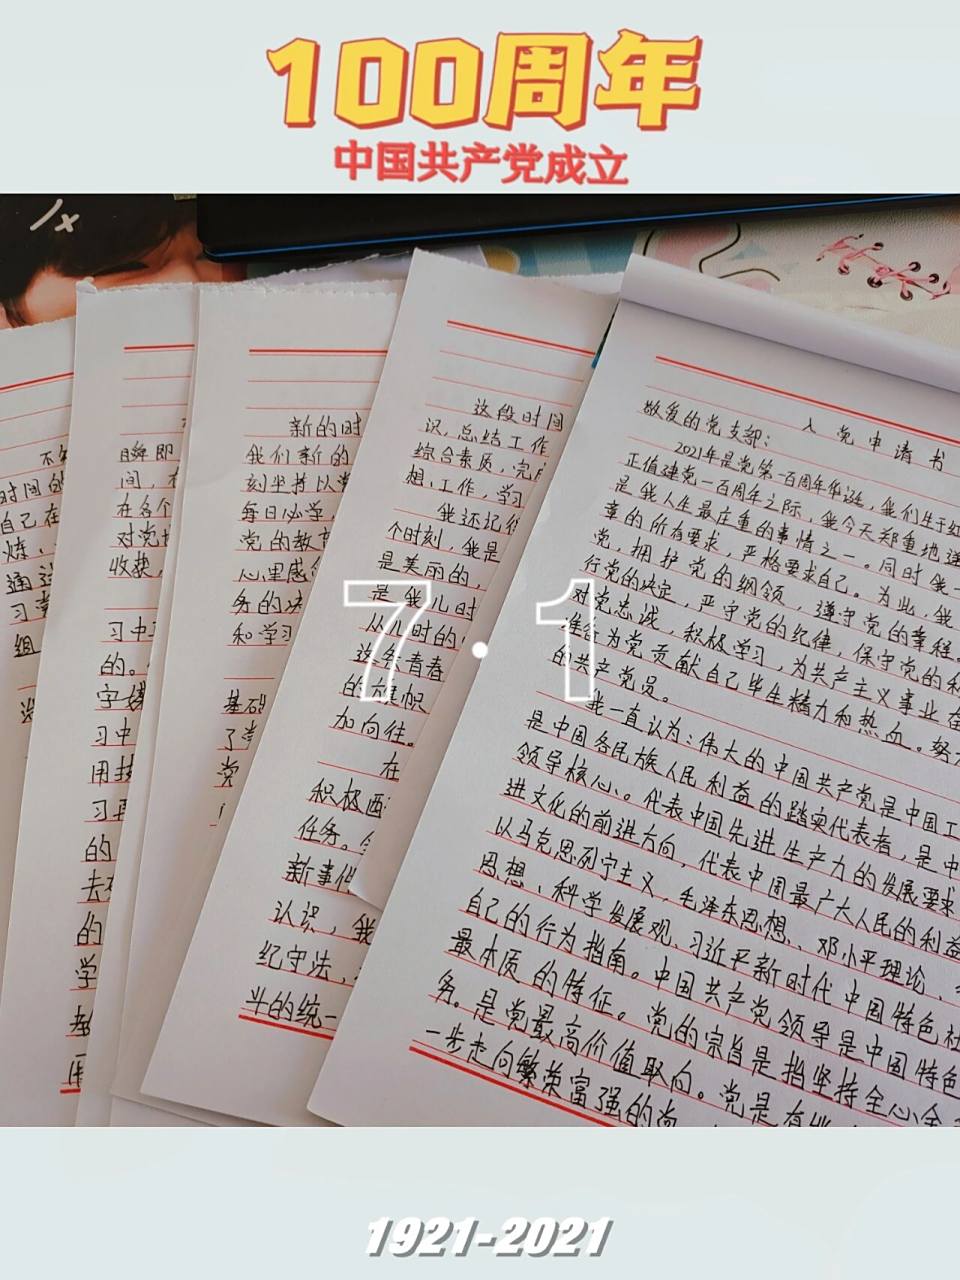 100周年
中国共产党成立
7·1
不知
时间的
自己在
炼、
通过
习掌
组
瞬即
间,在
在各个
对党
收获,
习中
的。
字
习中
用
习再
的
去
的
学
新的时
我们新的
刻坚持以
每日必学
党的教育
心里感
务的决
和学习
基础
了
党
这段时间
识,总结工作
综合素质,完成
想、工作,学习
我还记得
个时刻,我是
是美丽的,
是我儿时
从儿时的
这条青春
的旗帜
加向往。
在
积极配
任务。
新事件
认识,我
纪守法,
斗的统一
入党申请书
敬爱的党支部:
2021年是党第一百周年华诞,我们生于红
正值建党一百周年之际,我今天郑重地递
是我人生最庄重的事情之一。同时我一
章的所有要求,严格要求自己。为此,我
党,拥护党的纲领,遵守党的章程,
行党的决定,严守党的纪律,保守党的秘
对党忠诚,积极学习,为共产主义事业奋
准备为党贡献自己毕生精力和热血。努力
的共产党员。
我一直认为:伟大的中国共产党是中国工
是中国各民族人民利益的踏实代表者,是中
领导核心。代表中国先进生产力的发展要求
进文化的前进方向,代表中国最广大人民的利益
以马克思列宁主义、毛泽东思想、邓小平理论、
思想、科学发展观、习近平新时代中国特色社
自己的行为指南。中国共产党领导是中国特色
最本质的特征。党的宗旨是指坚持全心全
务。是党最高价值取向。党是有
一步走向繁荣富强的
1921-2021